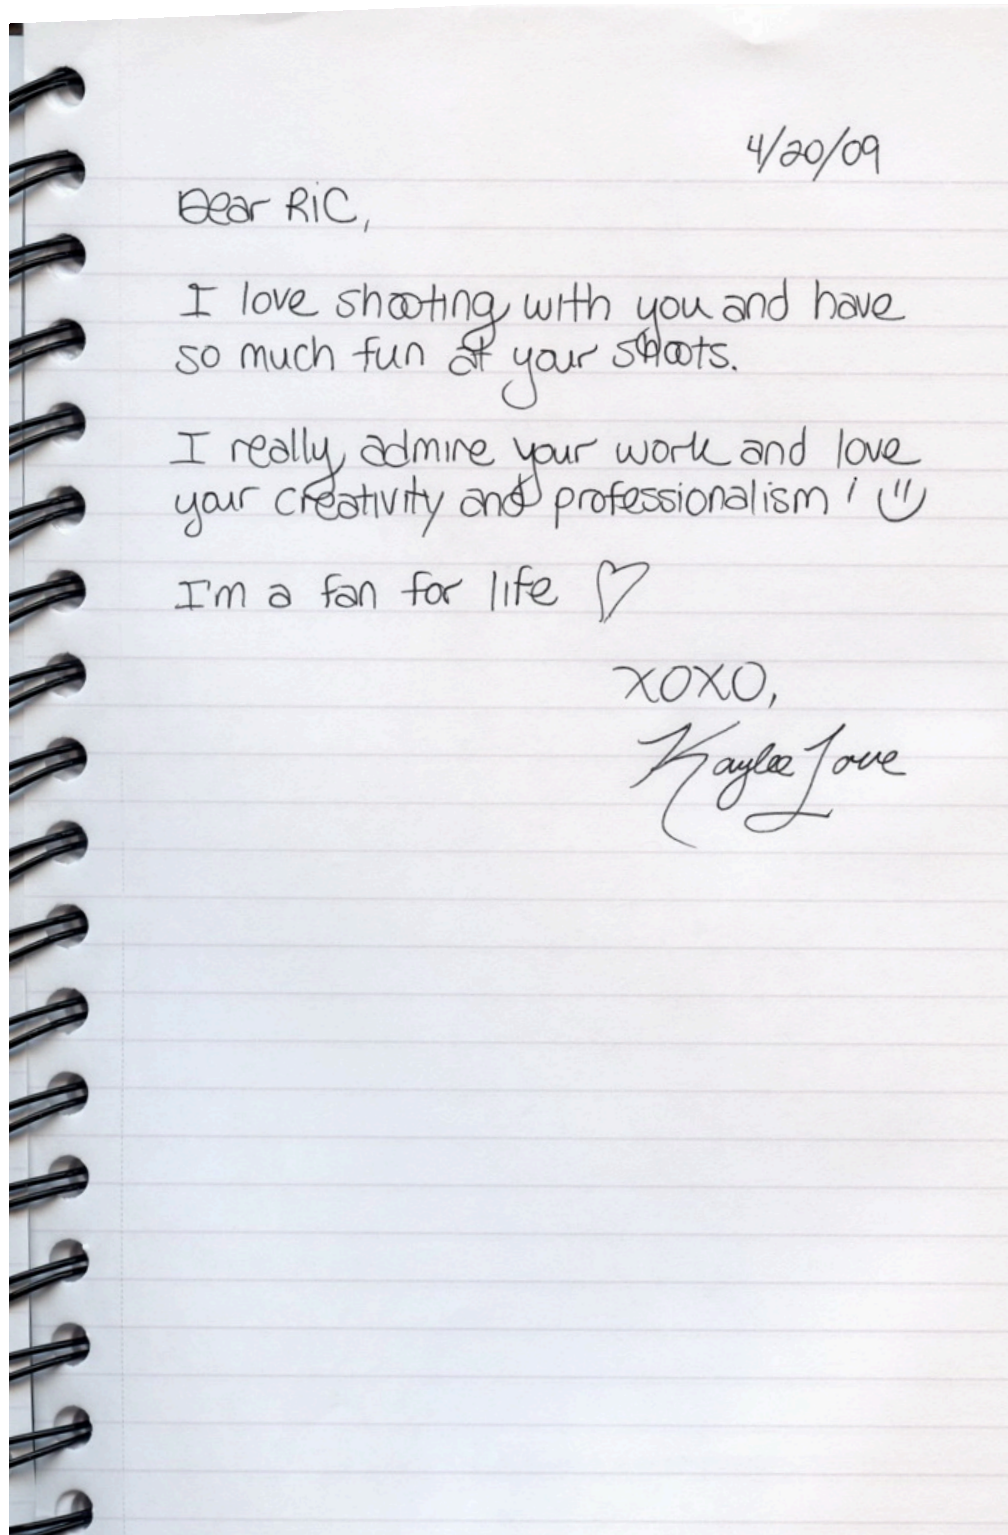 4/20/09
Dear RiC,
I love shooting with you and have
so much fun at your shoots.
I really admire your work and love
your creativity and professionalism!
I'm a fan for life
XOXO,
Kaylee Love